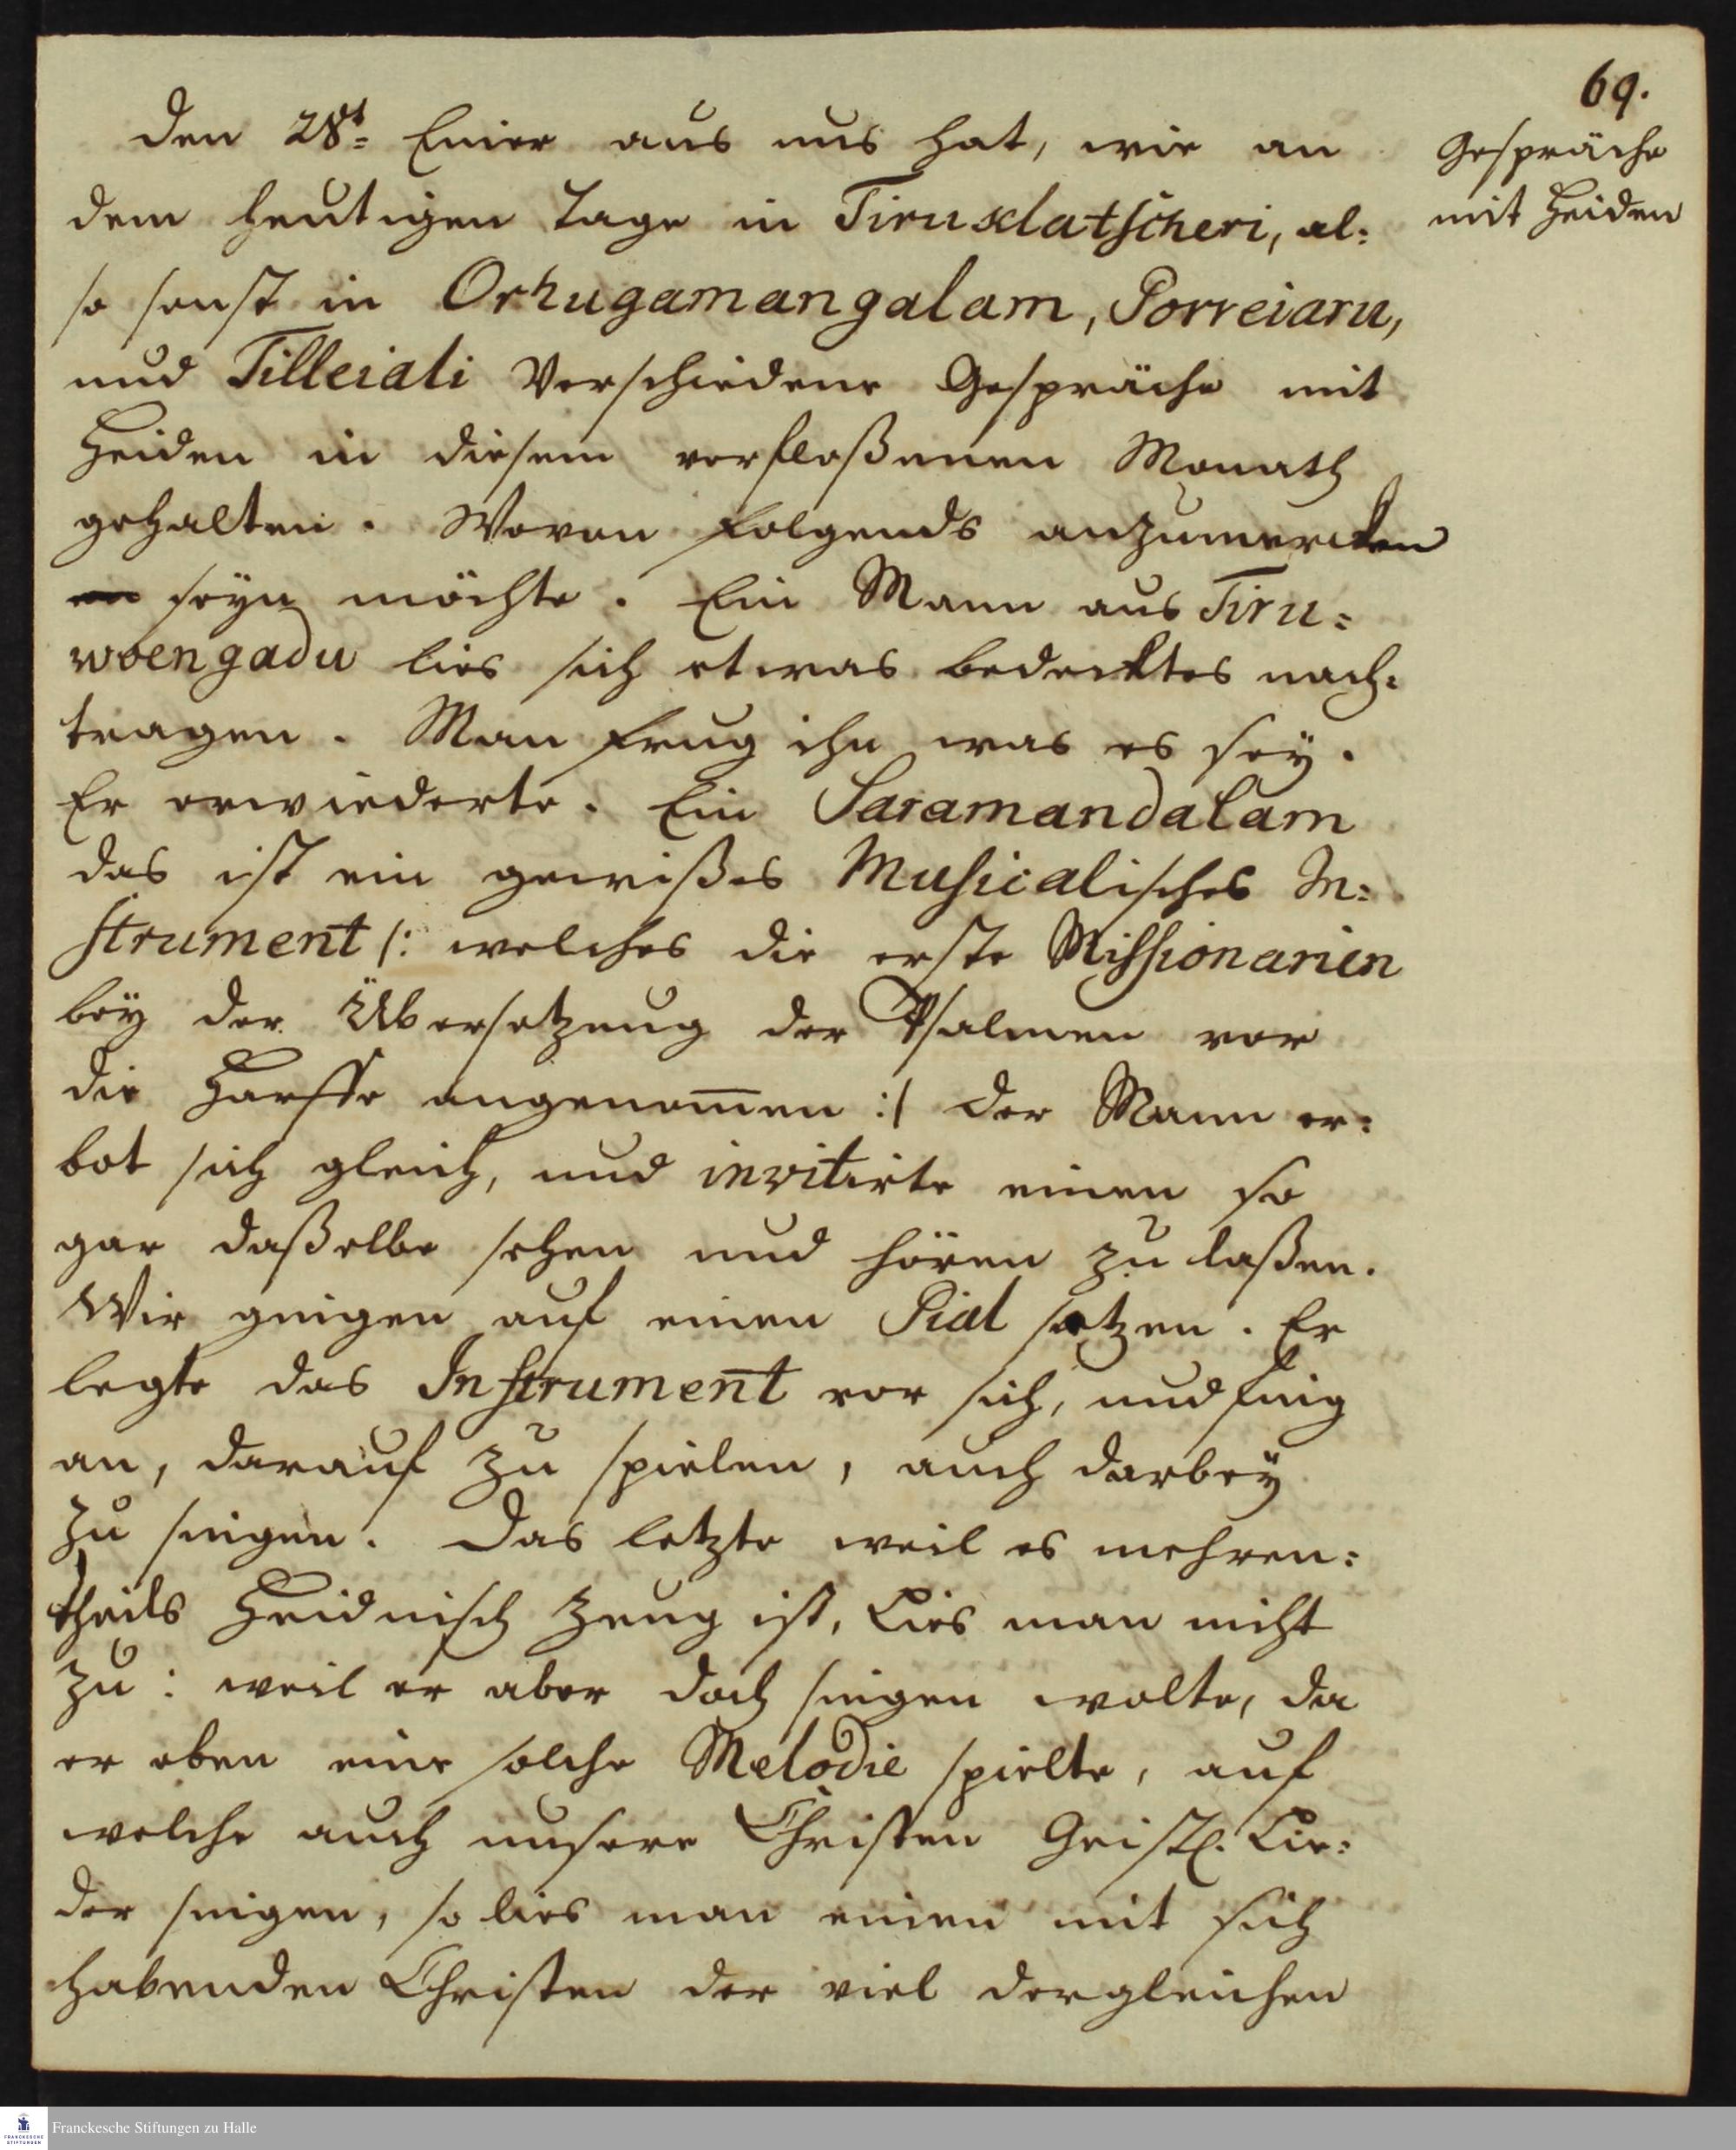 69.
Gespräche
mit Heiden
den 28t. Einer aus uns hat, wie an
dem heutigen Tage in Tirusclatscheri, al:
so sonst in Orhugamangalam, Porreiaru,
und Tilleiali Verschiedene Gespräche mit
Heiden in diesem verfloßenen Monath
gehalten. Wovon folgends anzumercken
seyn möchte. Ein Mann aus Tiru:
woengadu lies sich etwas bedecktes nach:
tragen. Man frug ihn was es sey.
Er erwiederte. Ein Saramandalam
das ist ein gewißes Musicalisches In:
strument /: welches die erste Missionarien
bey der Übersetzung der Psalmen vor
die Harffe angenom̅en :/ der Mann er:
bot sich gleich, und invitirte einen so
gar daßelbe sehen und hören zu laßen.
Wir gingen auf einen Pial setzen. Er
legte das Instrument vor sich, und fing
an, darauf zu spielen, auch darbey
zu singen. Das letzte weil es mehren:
theils Heidnisch Zeug ist, Lies man nicht
zu: weil er aber doch singen wolte, da
er eben eine solche Melodie spielte, auf
welche auch unsere Christen Geistl. Lie:
der singen, so lies man einen mit sich
habenden Christen der viel dergleichen
Franckesche Stiftungen zu Halle
FRANCKESCHE
STIFTUNGEN